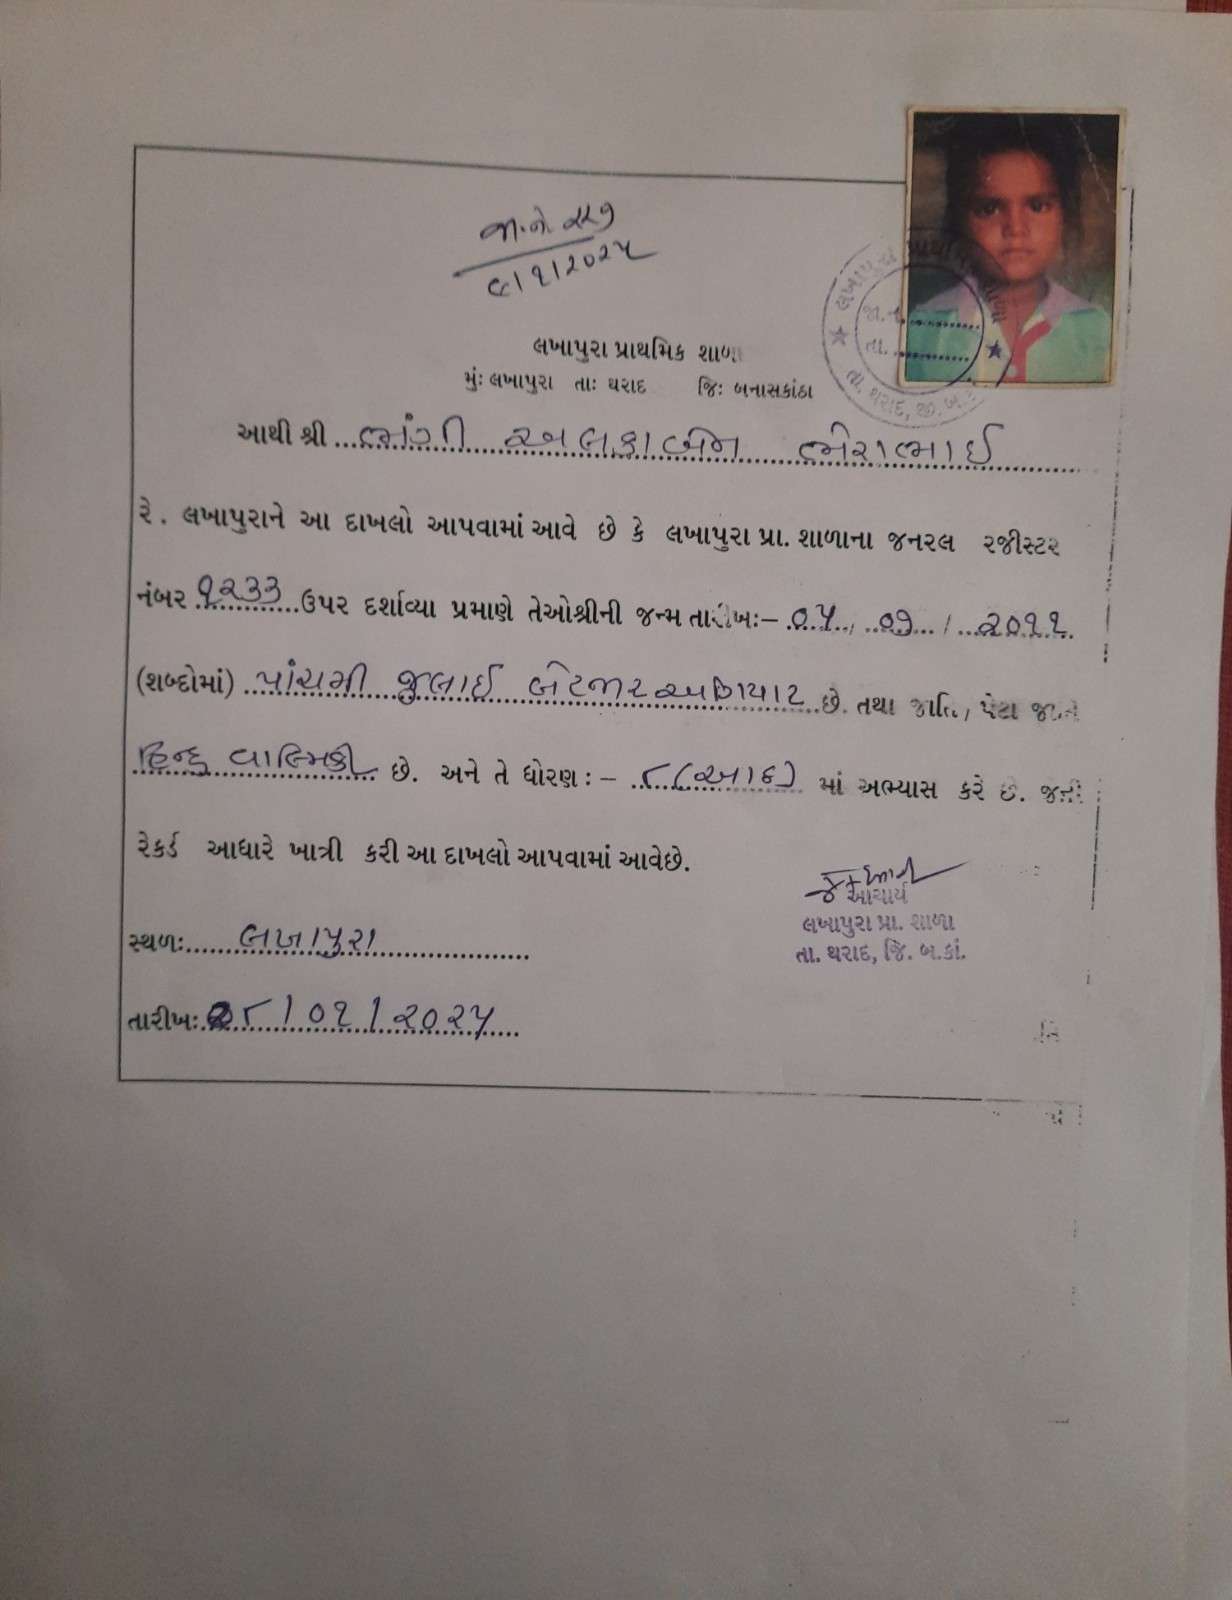 જા.નં ૨૨૭
૮/૧/૨૦૨૫
લખાપુરા પ્રાથમિક શાળા
મુંઃ લખાપુરા તાઃ થરાદ જિઃ બનાસકાંઠા
જા.નં.
તા.
તા. થરાદ, જી. બ.
આથી શ્રી ભાંગી અલકાબેન ભેરાભાઈ
રે. લખાપુરાને આ દાખલો આપવામાં આવે છે કે લખાપુરા પ્રા. શાળાના જનરલ રજીસ્ટર
નંબર ૧૨૩૩ ઉપર દર્શાવ્યા પ્રમાણે તેઓશ્રીની જન્મ તારીખઃ– ૦૫, ૦૭ / ૨૦૧૧
(શબ્દોમાં) પાંચમી જુલાઈ બેહજાર અગિયાર છે. તથા જાતિ, પેટા જાતિ
હિન્દુ વાલ્મિકી છે. અને તે ધોરણ :– ૮ (આઠ) માં અભ્યાસ કરે છે. જેની
રેકર્ડ આધારે ખાત્રી કરી આ દાખલો આપવામાં આવેછે.
આચાર્ય
લખાપુરા પ્રા. શાળા
તા. થરાદ, જિ. બ.કાં.
સ્થળઃ લખાપુરા
તારીખઃ ૦૮/૦૧/૨૦૨૫